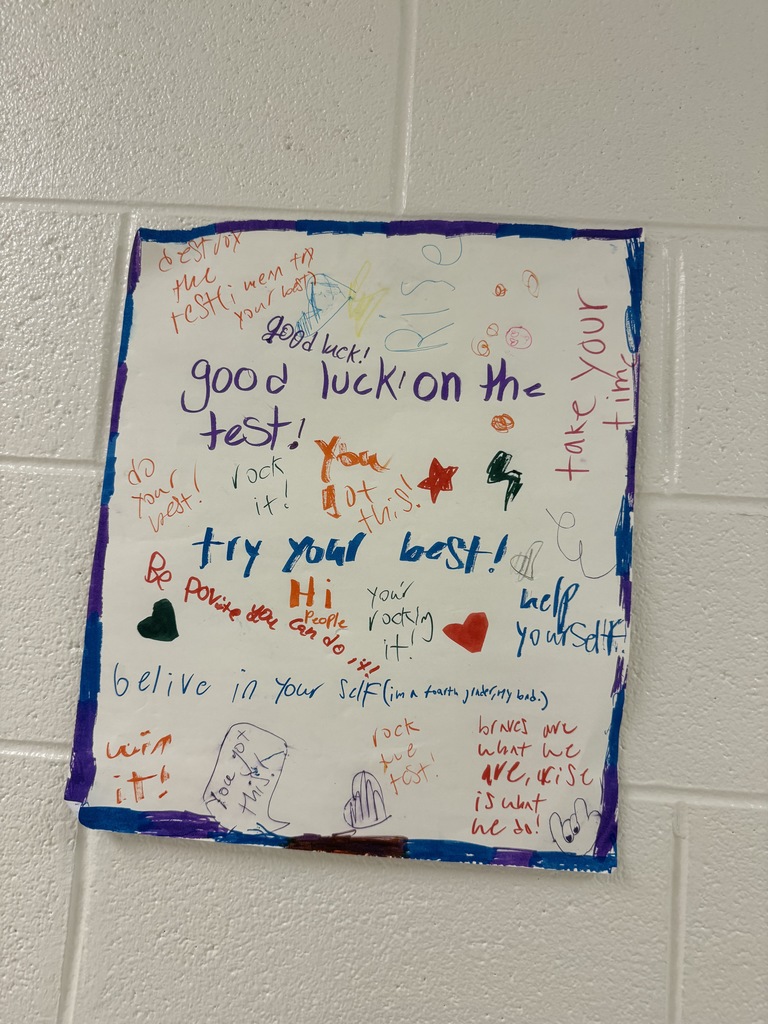 destroy
the
test(i men try
your best)
Rise
good luck!
take your
time
good luck! on the
test!
do
your
best!
rock
it!
You
got
this!
try your best!
Be povitve you can do it!
Hi
People
you'r
rockin
it!
help
yourself!
belive in your self (im a fourth grader, my bad.)
win
it!
You got
this!
rock
the
test!
braves are
what we
are, rise
is what
we do!